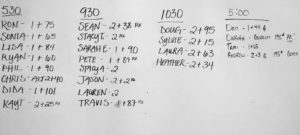 530
RON - 1+75
SONIA - 1+65
LISA - 1+84
RYAN - 1+60
PHIL - 1+90
CHRIS -
DINA - 1+101
KAYT - 2+25
930
SEAN - 2+38 RX
STACYE - 2
SARAHE - 1+90
PETE - 1+89
STACYA - 2
JASON - 2+2
LAUREN - 2
TRAVIS - 1+87 RX
1030
DOUG - 2+95
SYLVIE - 2+15
LAURA - 2+63
HEATHER - 2+34
5:00
Dan - 1+44